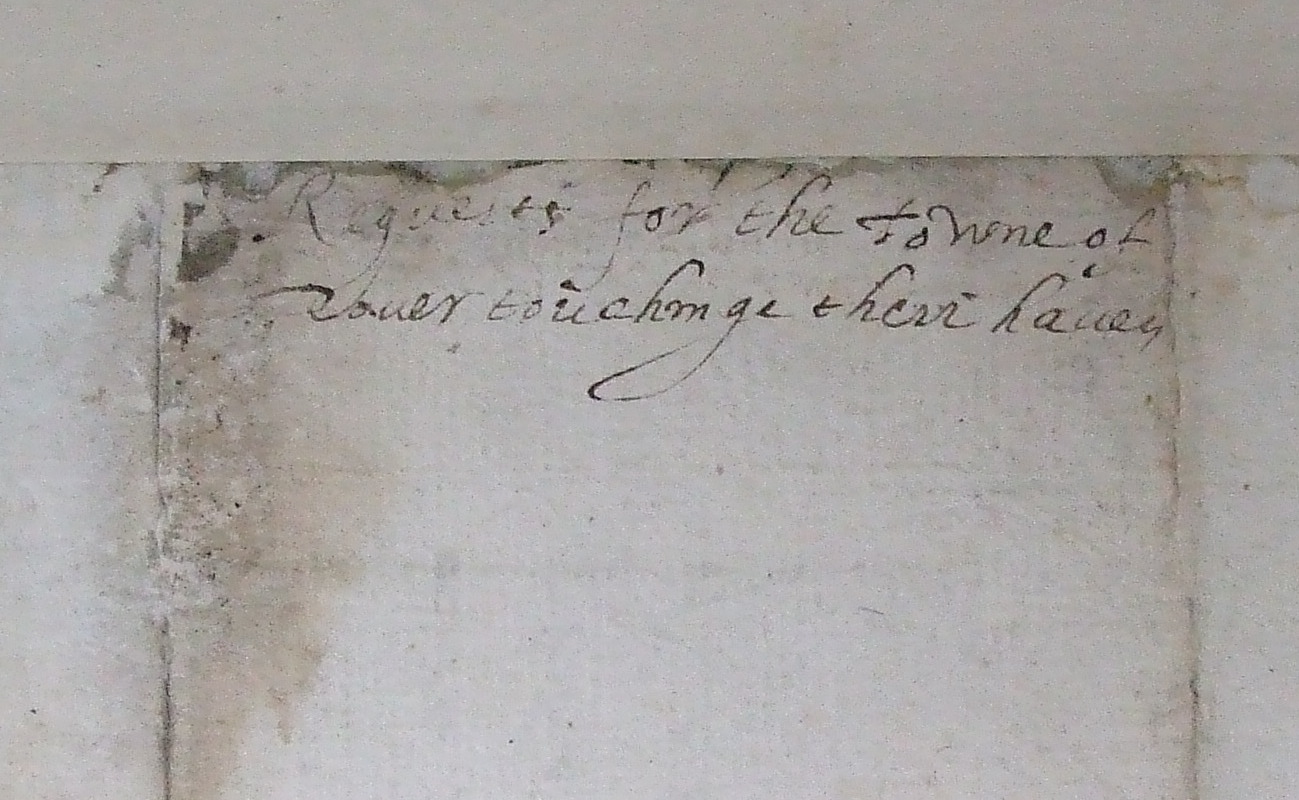 Requests for the towne of
Dover touchinge their haven